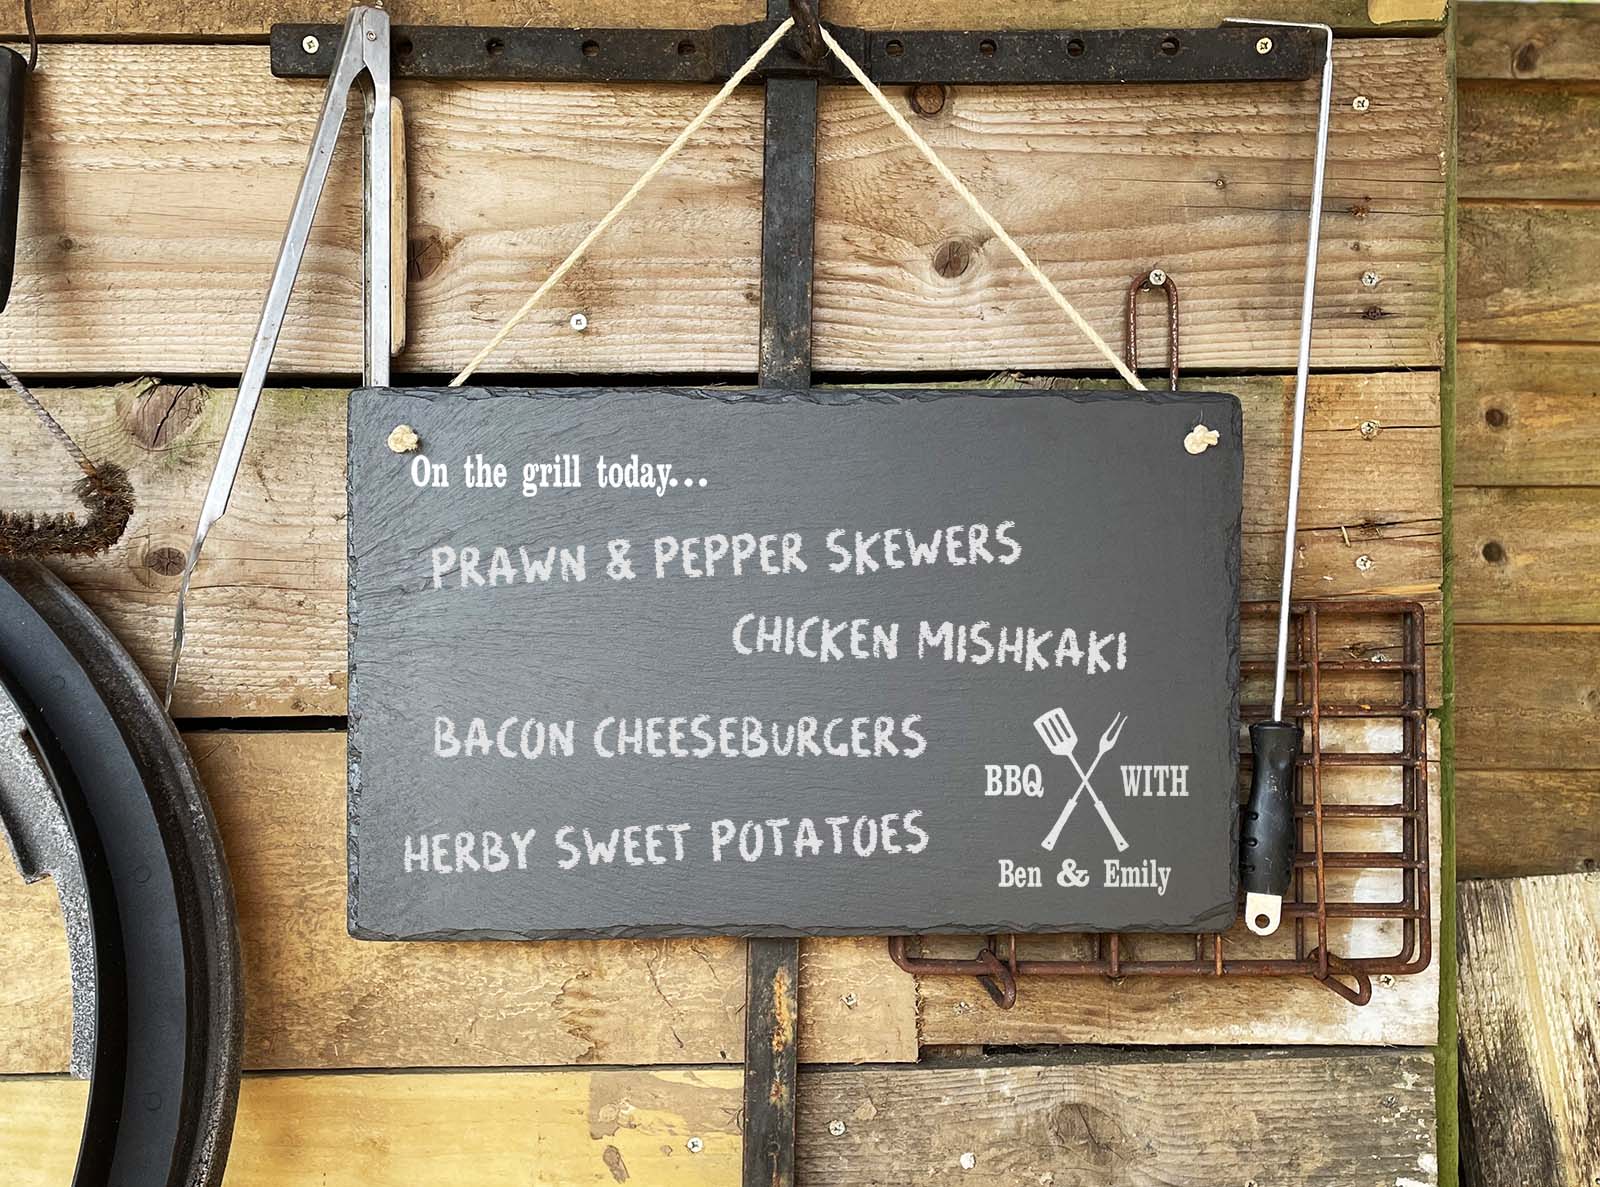 On the grill today...
PRAWN & PEPPER SKEWERS
CHICKEN MISHKAKI
BACON CHEESEBURGERS
HERBY SWEET POTATOES
BBQ WITH
Ben & Emily